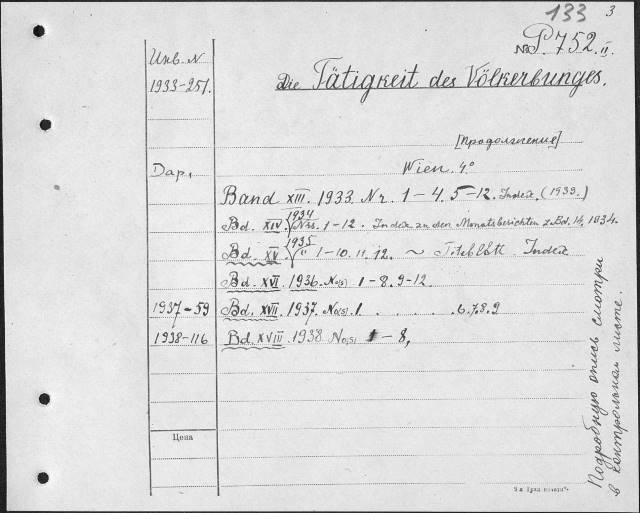 133 3
№ P.752.II.
Инв. N
1933-251.
Die Tätigkeit des Völkerbunges.
[Продолжение]
Дар. Wien. 4°
Band XIII. 1933. Nr. 1-4. 5-12. Index. (1933.)
Bd. XIV. 1934 Nrs. 1-12. Index zu den Monatsberichten z. Bd. 14, 1934.
Bd. XV. 1935 " 1-10. 11. 12. ~ Titelblatt. Index
Bd. XVI. 1936. No(s) 1-8. 9-12.
1937-59 Bd. XVII. 1937. No(s). 1 . . . . . 6.7.8.9
1938-116 Bd. XVIII. 1938 No(s) 1-8,
Цена
Подробную опись смотри
в контрольном листе.